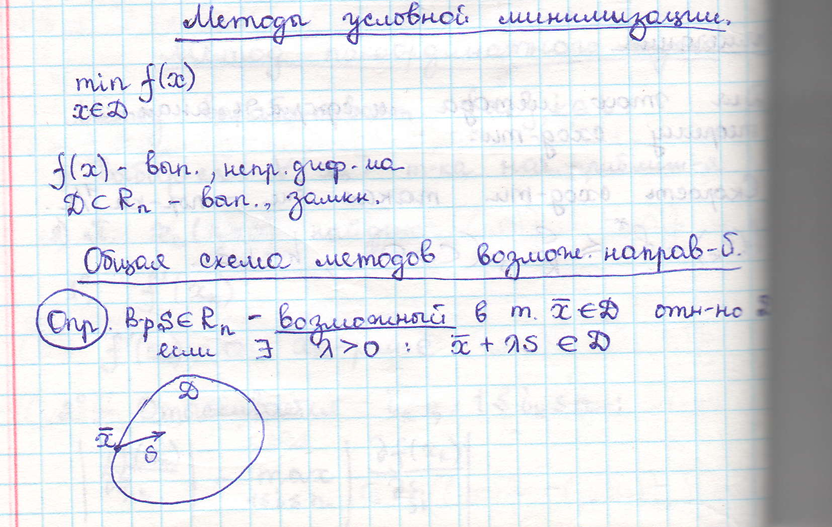 Методы условной минимизации.
min f(x)
x∈D
f(x) - вып., непр. диф-ма
D⊂Rn - вып., замкн.
Общая схема методов возмож. направ-й.
Опр. В-р S∈Rn - возможный в т. x̄∈D отн-но
если ∃ λ>0 : x̄ + λS ∈ D
D
x̄
S